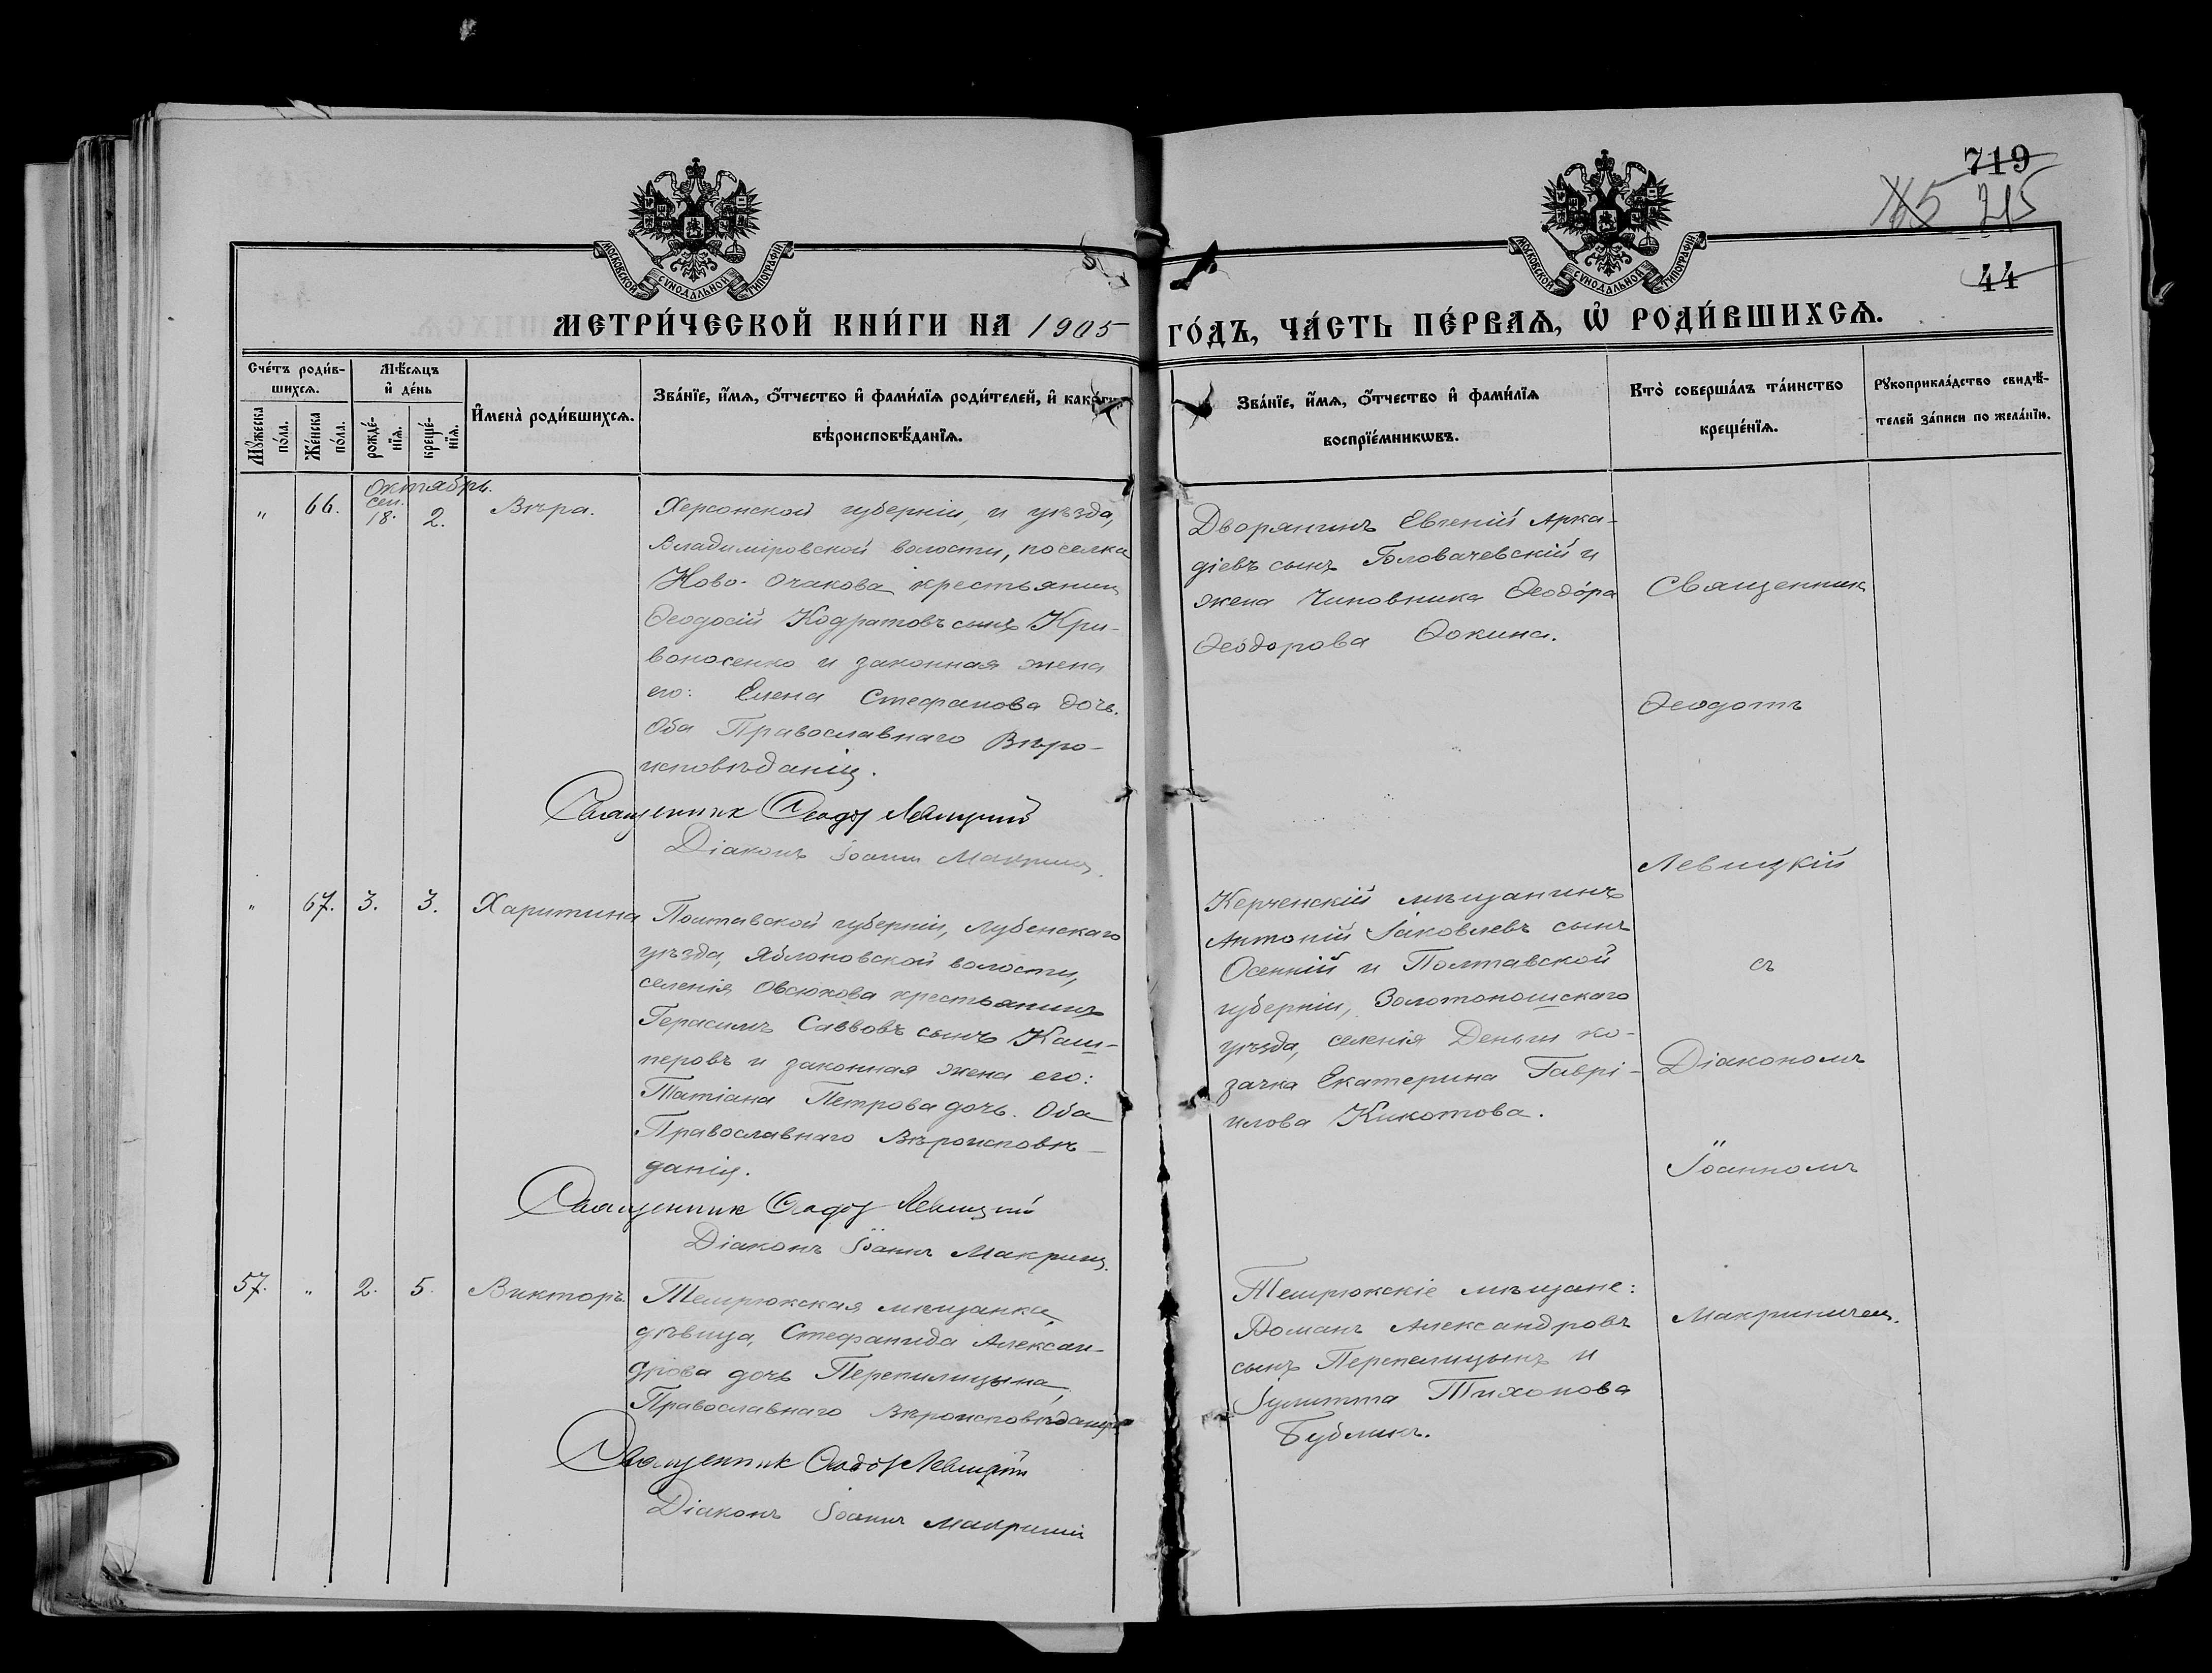 719
215
44
МОСКОВСКОЙ СѴНОДАЛЬНОЙ ТИПОГРАФІИ.
МОСКОВСКОЙ СѴНОДАЛЬНОЙ ТИПОГРАФІИ.
МЕТРИ́ЧЕСКОЙ КНИ́ГИ НА 1905
ГО́ДЪ, ЧА́СТЬ ПЕ́РВАѦ, Ѽ РОДИ́ВШИХСѦ.
Сче́тъ роди́в-
шихсѧ.
Мꙋ́жеска по́ла.
Же́нска по́ла.
Мѣ́сѧцъ
и҆ де́нь
рожде́-нїѧ.
креще́-нїѧ.
И҆мена̀ роди́вшихсѧ.
Зва́нїе, и҆́мѧ, ѻ҆́тчество и҆ фами́лїѧ роди́телей, и҆
вѣроисповѣ́данїѧ.
Зва́нїе, и҆́мѧ, ѻ҆́тчество и҆ фами́лїѧ
воспрїе́мникѡвъ.
Кто̀ соверша́лъ та́инство
креще́нїѧ.
Рꙋкоприкла́дство свидѣ́-
телей за́писи по жела́нїю.
Октябрь.
„ 66. сен. 18. 2. Вѣра.
Херсонской губерніи, и уѣзда,
Владиміровской волости, поселка
Ново-Очакова крестьянинъ
Ѳеодосій Кодратовъ сынъ Кри-
воносенко и законная жена
его: Елена Стефанова дочь.
Оба Православнаго Вѣро-
исповѣданія.
Священник Ѳеодот Левицкий
Діаконъ Іоаннъ Макринъ.
Дворянинъ Евгеній Арка-
діевъ сынъ Головачевскій и
жена Чиновника Ѳеодо́ра
Ѳеодорова Ѳокина.
Священникъ
Ѳеодотъ
Левицкій
съ
Діакономъ
Іоанномъ
„ 67. 3. 3. Харитина
Полтавской губерніи, Лубенскаго
уѣзда, Яблоновской волости,
селенія Овсюкова крестьянинъ
Герасимъ Саввовъ сынъ Каш-
перовъ и законная жена его:
Татіана Петрова дочь. Оба
Православнаго Вѣроисповѣ-
данія.
Священник Ѳеодот Левицкий
Діаконъ Іоаннъ Макринъ.
Керченскій мѣщанинъ
Антоній Іаковлевъ сынъ
Осенній и Полтавской
губерніи, Золотоношскаго
уѣзда, селенія Деньги ко-
зачка Екатерина Гаврі-
илова Кикотова.
57. „ 2. 5. Викторъ
Темрюкская мѣщанка,
дѣвица, Стефанида Алексан-
дрова дочь Перепилицына,
Православнаго Вѣроисповѣданія
Священник Ѳеодот Левицкий
Діаконъ Іоаннъ
Темрюкскіе мѣщане:
Романъ Александровъ
сынъ Перепелицынъ и
Іулитта Тихонова
Бубликъ.